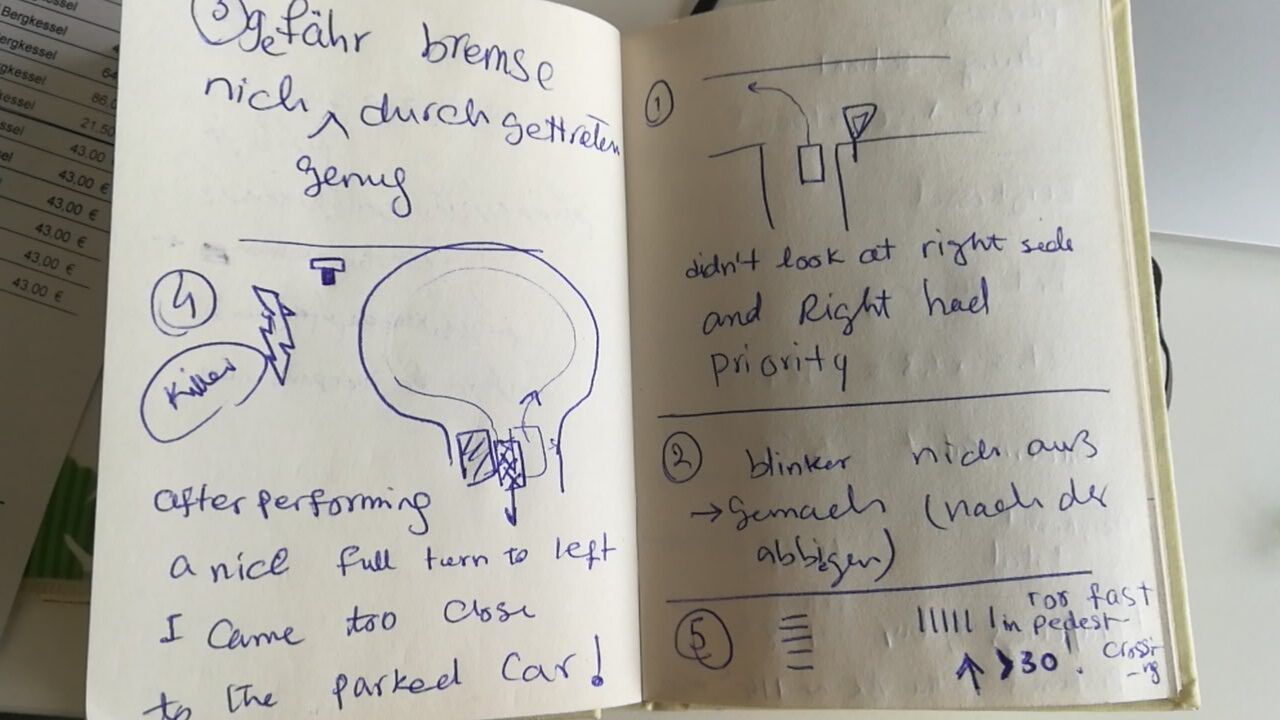 Bergkessel
Bergkessel
86,0
21.50
43.00
43.00 €
43.00 €
43.00 €
43.00 €
43.00 €
③ gefähr bremse
nich ^ durch gettreten
genug
④
Killer
after performing
a nice full turn to left
I came too close
to the parked car!
①
didn't look at right side
and Right had
priority
② blinker nich aus
→ gemach (nach der
abbigen)
⑤
too fast
in pedest-
crossi
-ng
↑ >30!